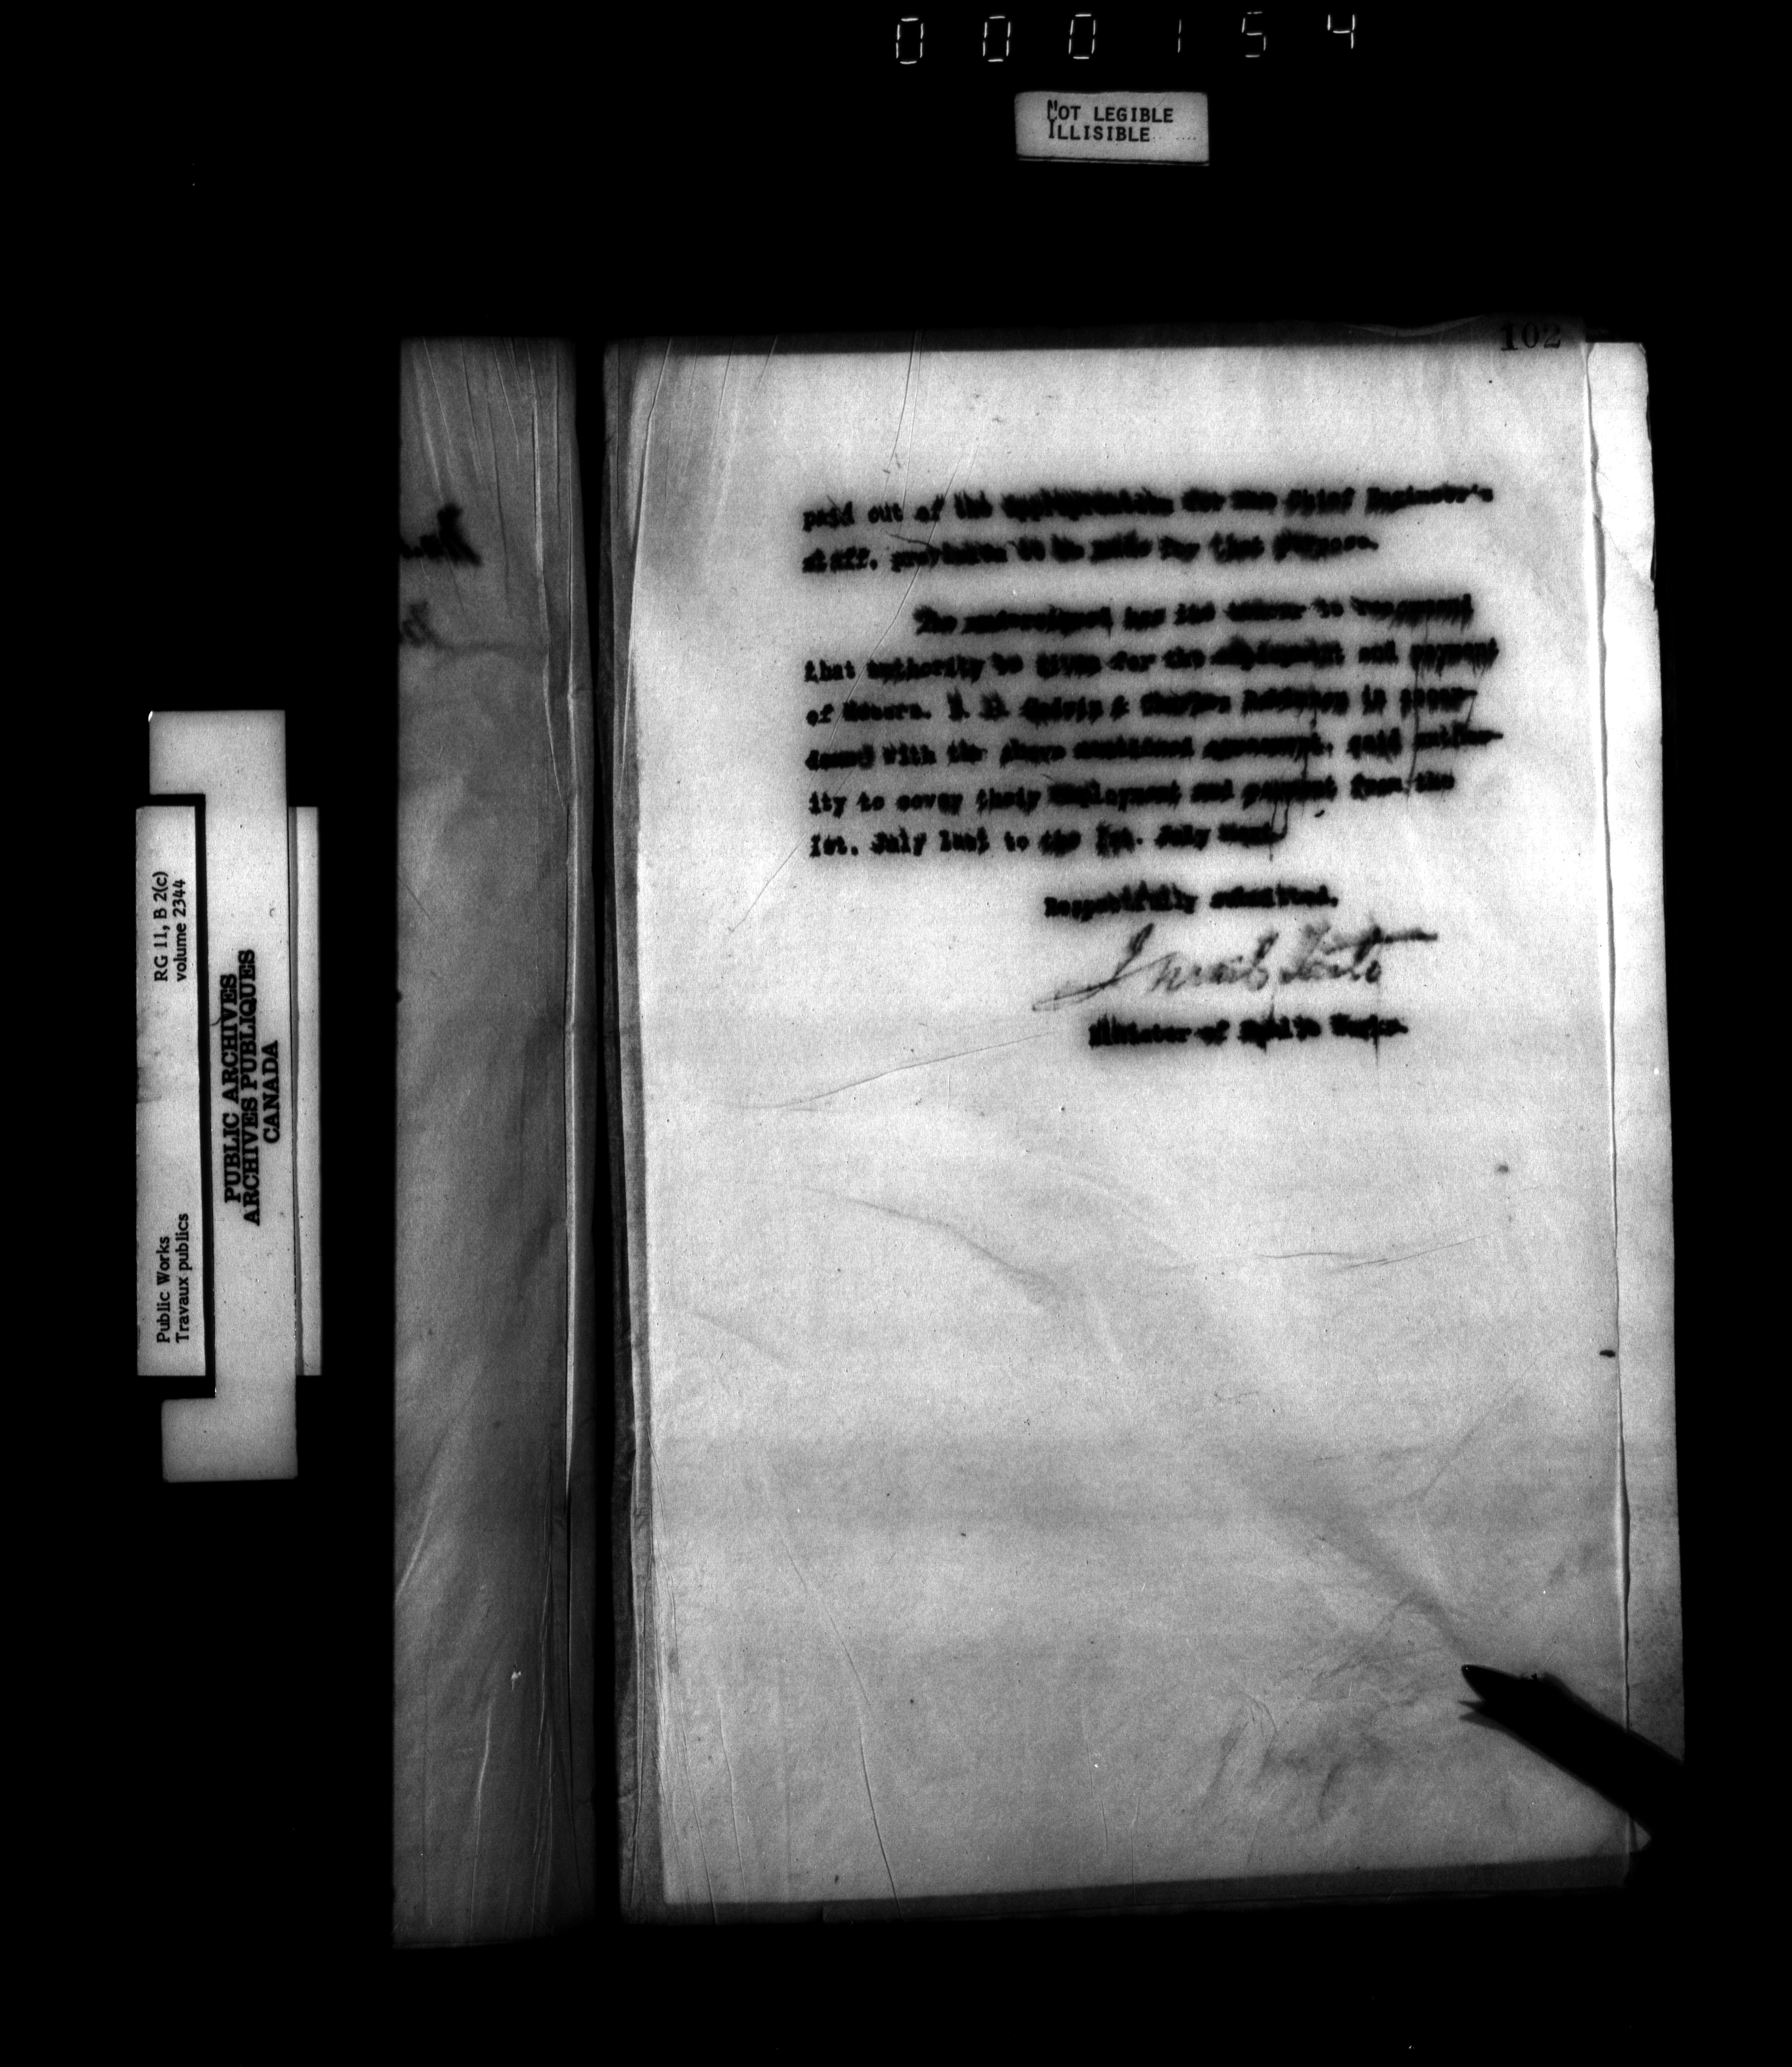 000154
NOT LEGIBLE
ILLISIBLE
102
paid out of the appropriation for the Chief Engineer's
staff, provision to be made for that purpose.
The undersigned has the honor to recommend
that authority be given for the employment and payment
of Messrs. & Charles in accor-
dance with the above mentioned agreement, said author-
ity to cover their employment and payment from the
1st. July last to the 1st. July next.
Respectfully submitted,
Minister of Public Works.
RG 11, B 2(c)
volume 2344
Public Works
Travaux publics
PUBLIC ARCHIVES
ARCHIVES PUBLIQUES
CANADA